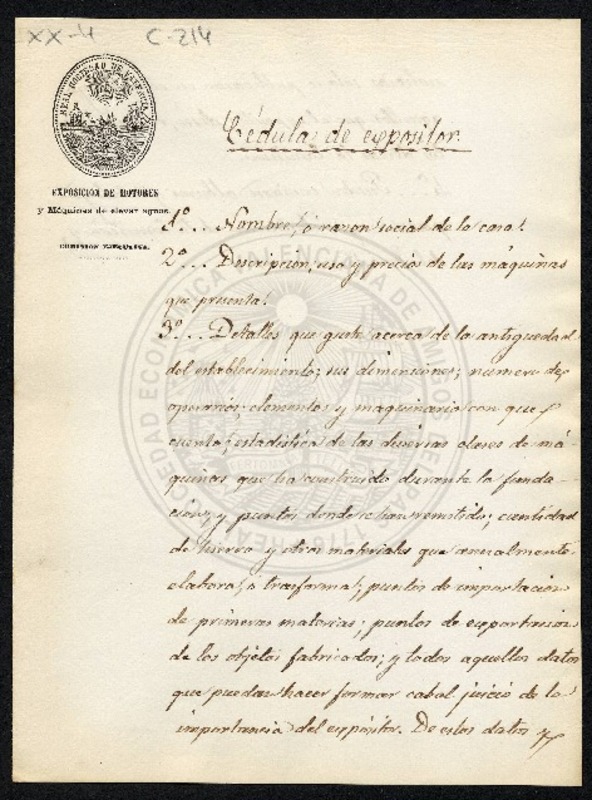 XX-4 C-214
REAL SOCIEDAD DE VALENCIA
EXPOSICION DE MOTORES
y Máquinas de elevar aguas.
COMISION EJECUTIVA.
Cédula de expositor.
1º... Nombre, ó razon social de la casa.
2º... Descripcion, uso y precios de las máquinas
que presenta.
3º... Detalles que guste acerca de la antiguedad
del establecimiento; sus dimensiones; numero de
operarios; elementos y maquinaria con que
cuenta; estadística de las diversas clases de má-
quinas que ha construido durante la funda-
cion, y puntos donde se han remitido; cantidad
de hierro y otros materiales que anualmente
elabora, ó trasforma; puntos de importacion
de primeras materias; puntos de exportacion
de los objetos fabricados; y todos aquellos datos
que puedan hacer formar cabal juicio de la
importancia del expósitor. De estos datos
REAL SOCIEDAD ECONOMICA VALENCIANA DE AMIGOS DEL PAIS 1776